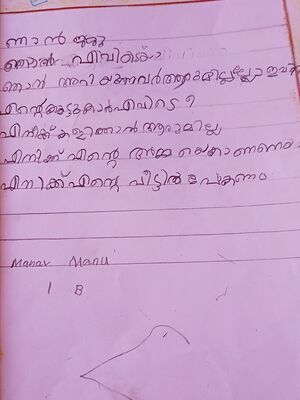 ഞാൻ ജുജു
ഞാൻ എവിടെയാ
ഞാൻ അറിയുന്നവർ ആരുമില്ലല്ലോ ഇവിടെ
എന്റെ കൂട്ടുകാർ എവിടെ ?
എനിക്ക് കളിക്കാൻ ആരുമില്ല
എനിക്ക് എന്റെ അമ്മ യെ കാണണം
എനിക്ക് എന്റെ വീട്ടിൽ പോകണം
Manav Manu
1 B